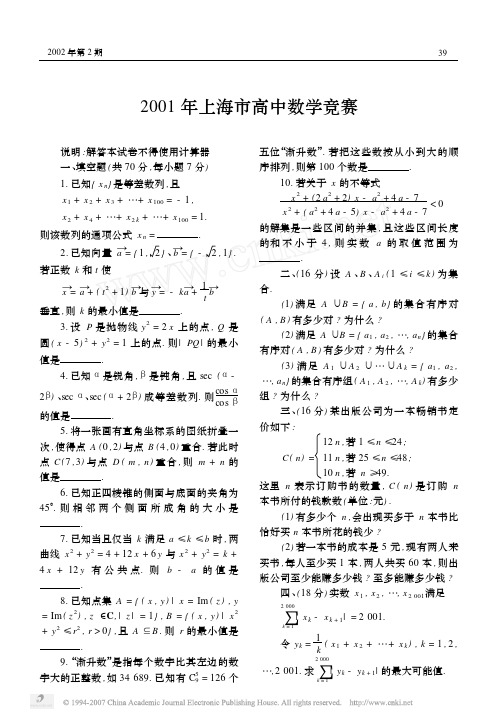 2002 年第 2 期
39
2001 年上海市高中数学竞赛
说明:解答本试卷不得使用计算器
一、填空题(共 70 分,每小题 7 分)
1. 已知{ xn}是等差数列,且
x1 + x2 + x3 + … + x100 = - 1 ,
x2 + x4 + … + x2k + … + x100 = 1.
则该数列的通项公式 xn = ________.
2. 已知向量 a = { 1 , √2} 、b = { - √2 ,1}.
若正数 k 和 t 使
x = a + ( t² + 1) b 与 y = - ka + 1/t b
垂直,则 k 的最小值是________.
3. 设 P 是抛物线 y² = 2 x 上的点, Q 是
圆( x - 5)² + y² = 1 上的点. 则| PQ| 的最小
值是________.
4. 已知 α 是锐角,β 是钝角,且 sec (α -
2β) 、sec α、sec (α + 2β) 成等差数列. 则 cos α/cos β
的值是________.
5. 将一张画有直角坐标系的图纸折叠一
次,使得点 A (0 ,2) 与点 B (4 ,0) 重合. 若此时
点 C(7 ,3) 与点 D ( m , n) 重合,则 m + n 的
值是________.
6. 已知正四棱锥的侧面与底面的夹角为
45°. 则相邻两个侧面所成角的大小是
________.
7. 已知当且仅当 k 满足 a ≤ k ≤ b 时,两
曲线 x² + y² = 4 + 12 x + 6 y 与 x² + y² = k +
4 x + 12 y 有公共点. 则 b - a 的值是
________.
8. 已知点集 A = { ( x , y) | x = Im ( z) , y
= Im ( z²) , z ∈C,| z| = 1} , B = { ( x , y) | x²
+ y² ≤ r² , r > 0} ,且 A ⊆ B . 则 r 的最小值是
________.
9. “渐升数”是指每个数字比其左边的数
字大的正整数. 如 34 689. 已知有 C₉⁵ = 126 个
五位“渐升数”. 若把这些数按从小到大的顺
序排列,则第 100 个数是________.
10. 若关于 x 的不等式
x² + (2 a² + 2) x - a² + 4 a - 7
x² + ( a² + 4 a - 5) x - a² + 4 a - 7
< 0
的解集是一些区间的并集,且这些区间长度
的和不小于 4 , 则实数 a 的取值范围为
________.
二、(16 分) 设 A 、B 、Ai (1 ≤ i ≤ k) 为集
合.
(1) 满足 A ∪ B = { a , b} 的集合有序对
( A , B) 有多少对 ? 为什么 ?
(2) 满足 A ∪B = { a1 , a2 , …, an} 的集合
有序对 ( A , B) 有多少对 ? 为什么 ?
(3) 满足 A1 ∪ A2 ∪ … ∪ Ak = { a1 , a2 ,
…, an}的集合有序组( A1 , A2 , …, Ak) 有多少
组 ? 为什么 ?
三、(16 分) 某出版公司为一本畅销书定
价如下 :
C( n) =
12 n ,若 1 ≤ n ≤24 ;
11 n ,若 25 ≤ n ≤48 ;
10 n ,若 n ≥49.
这里 n 表示订购书的数量, C( n) 是订购 n
本书所付的钱款数(单位:元) .
(1) 有多少个 n ,会出现买多于 n 本书比
恰好买 n 本书所花的钱少 ?
(2) 若一本书的成本是 5 元,现有两人来
买书,每人至少买 1 本,两人共买 60 本,则出
版公司至少能赚多少钱 ? 至多能赚多少钱 ?
四、(18 分) 实数 x1 , x2 , …, x2 001满足
∑(k=1→2 000) | xk - xk+1| = 2 001.
令 yk = 1/k ( x1 + x2 + … + xk) , k = 1 ,2 ,
…,2 001. 求 ∑(k=1→2 000) | yk - yk+1| 的最大可能值.
www.cnki.net
© 1994-2007 China Academic Journal Electronic Publishing House. All rights reserved. http://www.cnki.net